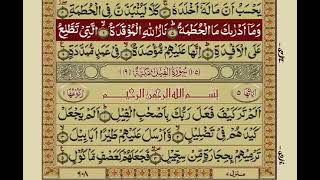 يَحْسَبُ اَنَّ مَالَهٗۤ اَخْلَدَهٗ كَلَّا لَيُنْۢبَذَنَّ فِي الْحُطَمَةِ
وَمَاۤ اَدْرٰىكَ مَا الْحُطَمَةُ نَارُ اللّٰهِ الْمُوْقَدَةُ الَّتِيْ تَطَّلِعُ
عَلَى الْاَفْـِٕدَةِ اِنَّهَا عَلَيْهِمْ مُّؤْصَدَةٌ فِيْ عَمَدٍ مُّمَدَّدَةٍ
(۱۰۵) سُوْرَةُ الْفِيْلِ مَكِّيَّةٌ (۱۹)
اٰيَاتُهَا ۵ بِسْمِ اللّٰهِ الرَّحْمٰنِ الرَّحِيْمِ رُكُوْعُهَا ۱
اَلَمْ تَرَ كَيْفَ فَعَلَ رَبُّكَ بِاَصْحٰبِ الْفِيْلِ اَلَمْ يَجْعَلْ
كَيْدَهُمْ فِيْ تَضْلِيْلٍ وَّاَرْسَلَ عَلَيْهِمْ طَيْرًا اَبَابِيْلَ
تَرْمِيْهِمْ بِحِجَارَةٍ مِّنْ سِجِّيْلٍ فَجَعَلَهُمْ كَعَصْفٍ مَّاْكُوْلٍ
منزل ۷